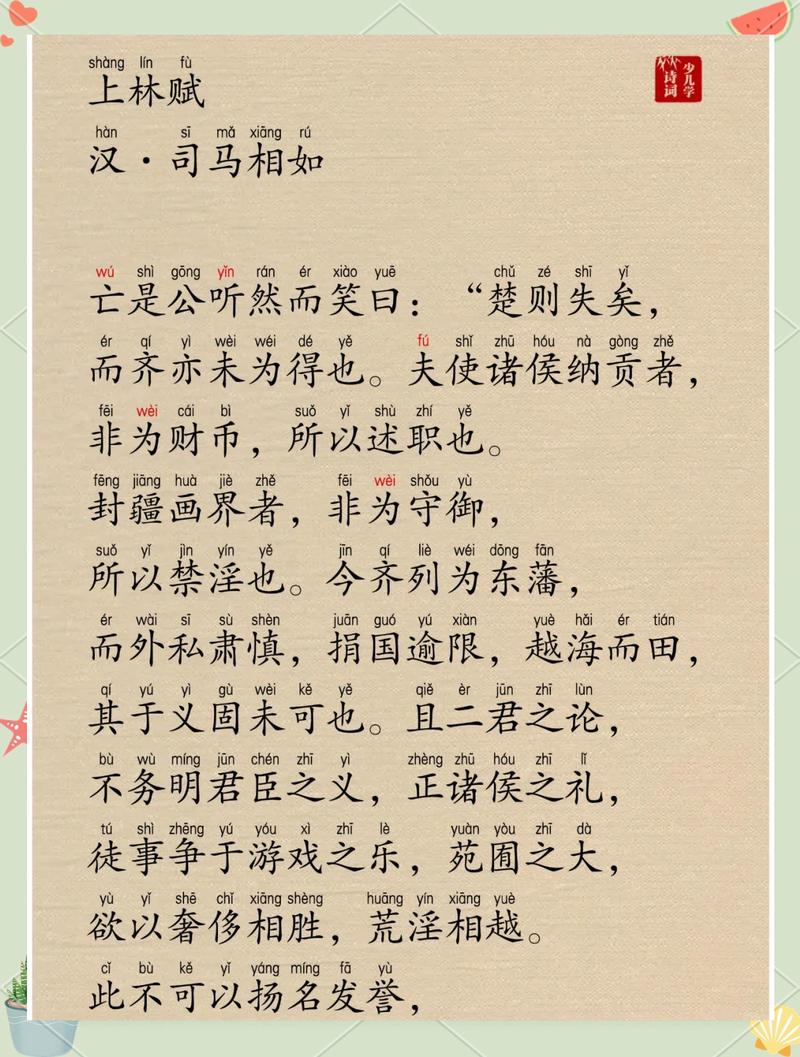 shàng lín fù
上林赋
hàn sī mǎ xiāng rú
汉·司马相如
少儿学
诗词
wú shì gōng yǐn rán ér xiào yuē chǔ zé shī yǐ
亡是公听然而笑曰：“楚则失矣，
ér qí yì wèi wéi dé yě fú shǐ zhū hóu nà gòng zhě
而齐亦未为得也。夫使诸侯纳贡者，
fēi wèi cái bì suǒ yǐ shù zhí yě
非为财币，所以述职也。
fēng jiāng huà jiè zhě fēi wèi shǒu yù
封疆画界者，非为守御，
suǒ yǐ jìn yín yě jīn qí liè wéi dōng fān
所以禁淫也。今齐列为东藩，
ér wài sī sù shèn juān guó yú xiàn yuè hǎi ér tián
而外私肃慎，捐国逾限，越海而田，
qí yú yì gù wèi kě yě qiě èr jūn zhī lùn
其于义固未可也。且二君之论，
bù wù míng jūn chén zhī yì zhèng zhū hóu zhī lǐ
不务明君臣之义，正诸侯之礼，
tú shì zhēng yú yóu xì zhī lè yuàn yòu zhī dà
徒事争于游戏之乐，苑囿之大，
yù yǐ shē chǐ xiāng shèng huāng yín xiāng yuè
欲以奢侈相胜，荒淫相越。
cǐ bù kě yǐ yáng míng fā yù
此不可以扬名发誉，